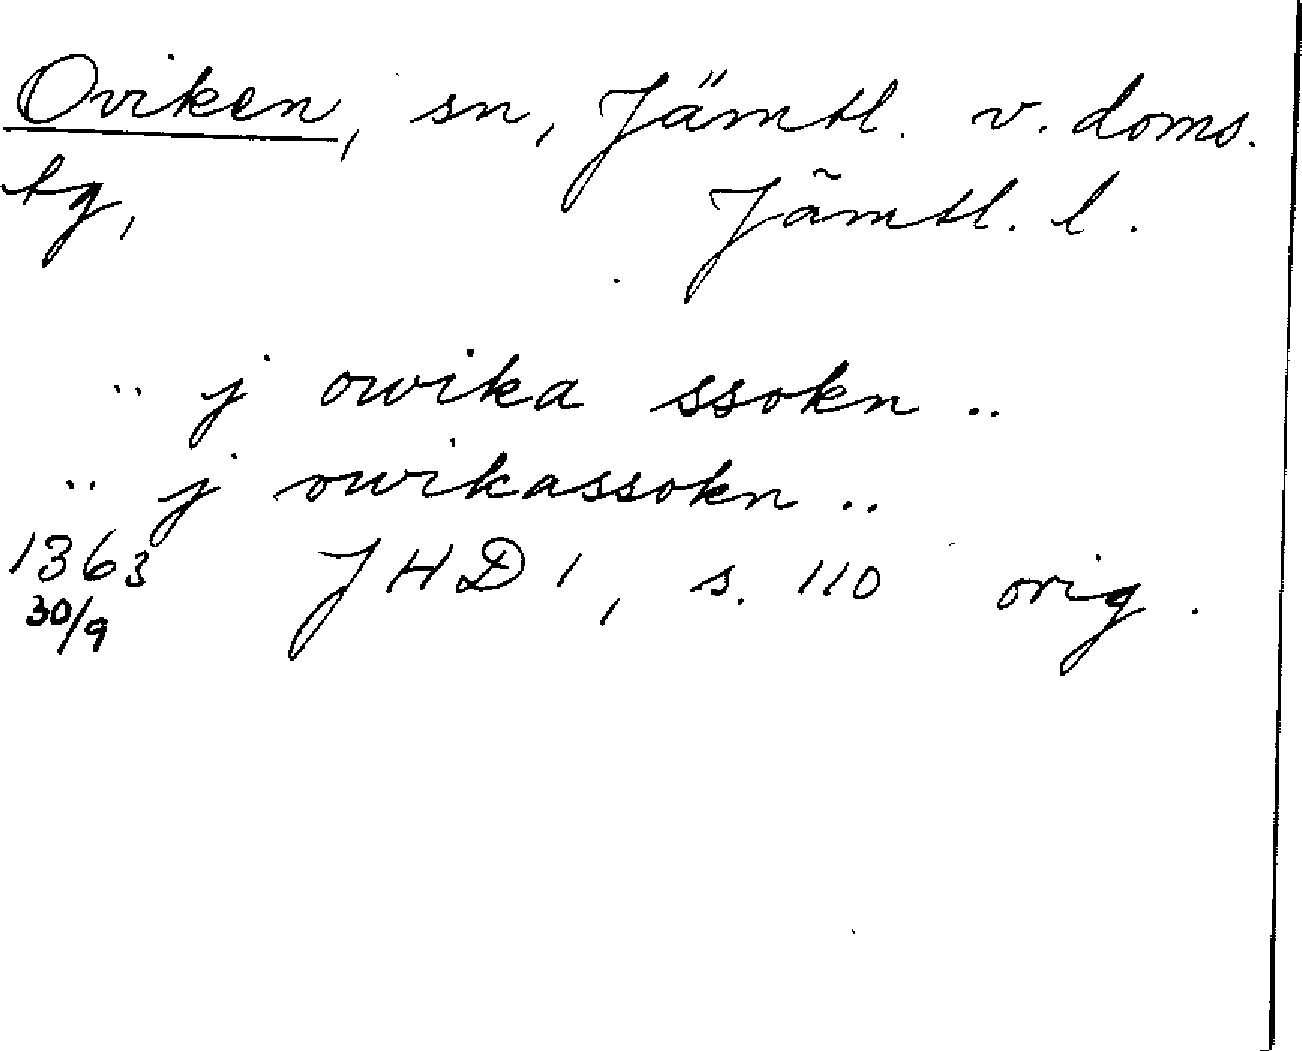 Oviken, sn, Jämtl. v. doms.
tg, Jämtl. l.
.. j owika ssokn ..
.. j owikassokn ..
1363 JHD 1, s. 110 orig.
30/9